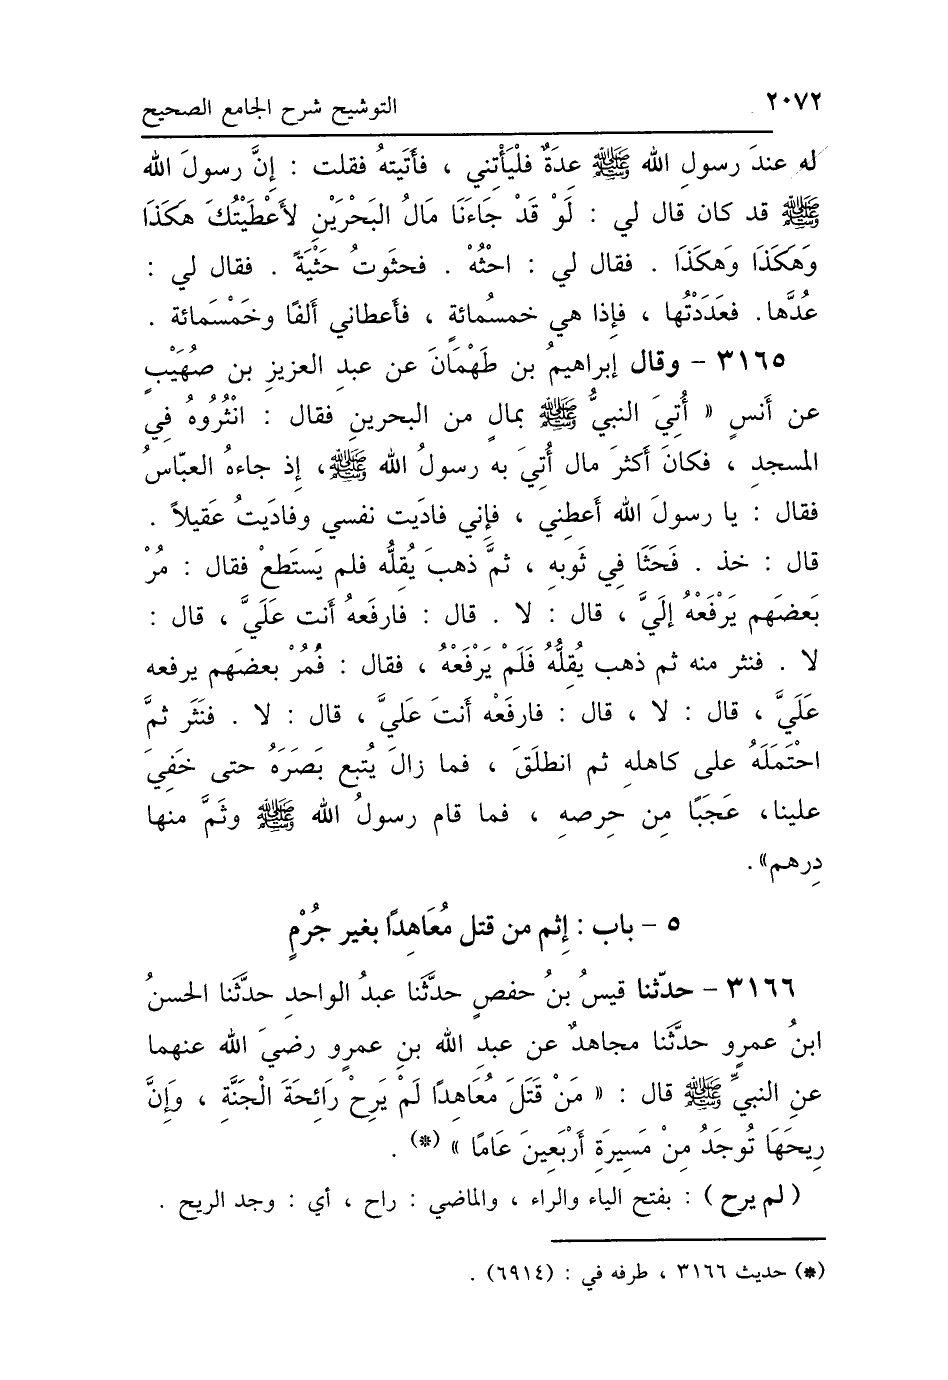 ٢٠٧٢ التوشيح شرح الجامع الصحيح
له عندَ رسولِ الله ﷺ عدَةٌ فلْيَأْتني ، فأَتَيته فقلت : إِنَّ رسولَ الله
ﷺ قد كان قال لي : لَوْ قَدْ جَاءَنَا مَالُ البَحْرَيْنِ لأَعْطَيْتُكَ هَكَذَا
وَهَكَذَا وَهكَذَا . فقال لي : احْثُهْ . فحثَوتُ حَثْيَةً . فقال لي :
عُدَّها. فعَدَدْتُها ، فإِذا هي خمسُمائةٍ ، فأَعطاني أَلفًا وخَمْسَمائة .
٣١٦٥ - وقال إبراهيمُ بن طَهْمَانَ عن عبدِ العزيزِ بن صهَيْبٍ
عن أَنسٍ « أُتِيَ النبيُّ ﷺ بمالٍ من البحرينِ فقال : انْثُرُوهُ فِي
المسجدِ ، فكانَ أَكثرَ مال أُتيَ به رسولُ الله ﷺ، إِذ جاءهُ العبّاسُ
فقال : يا رسولَ الله أَعطِني ، فإِني فادَيت نفسي وفادَيتُ عَقيلاً .
قال : خذ . فَحَثَا فِي ثَوبهِ ، ثمَّ ذهبَ يُقلُّه فلم يَستَطعْ فقال : مُرْ
بَعضَهم يَرْفَعْهُ إِلَيَّ ، قال : لا . قال : فارفَعهُ أَنت عَلَيَّ ، قال :
لا . فنثر منه ثم ذهب يُقِلُّهُ فَلَمْ يَرْفَعْهُ ، فقال : فُمُرْ بعضَهم يرفعه
عَلَيَّ ، قال : لا ، قال : فارفَعْه أَنتَ عَليَّ ، قال : لا . فنَثَر ثمَّ
احْتَمَلَهُ على كاهلهِ ثم انطلَقَ ، فما زالَ يُتبع بَصَرَهُ حتى خَفِيَ
علينا، عَجَبًا مِن حِرصهِ ، فما قام رسولُ الله ﷺ وثَمَّ منها
دِرهم».
٥ - باب : إثم من قتل مُعَاهِدًا بغير جُرْمٍ
٣١٦٦ - حدّثنا قيسُ بنُ حفصٍ حدَّثَنا عبدُ الواحدِ حدَّثَنا الحسنُ
ابنُ عمرٍو حدَّثَنا مجاهدٌ عن عبدِ الله بنِ عمرٍو رضيَ الله عنهما
عنِ النبيِّ ﷺ قال : « مَنْ قَتَلَ مُعَاهِدًا لَمْ يَرِحْ رَائِحَةَ الْجَنَّةِ ، وَإِنَّ
رِيحَهَا تُوجَدُ مِنْ مَسِيرَةِ أَرْبَعِينَ عَامًا » (*) .
( لم يرح ) : بفتح الياء والراء ، والماضي : راح ، أي : وجد الريح .
(*) حديث ٣١٦٦ ، طرفه في : (٦٩١٤) .